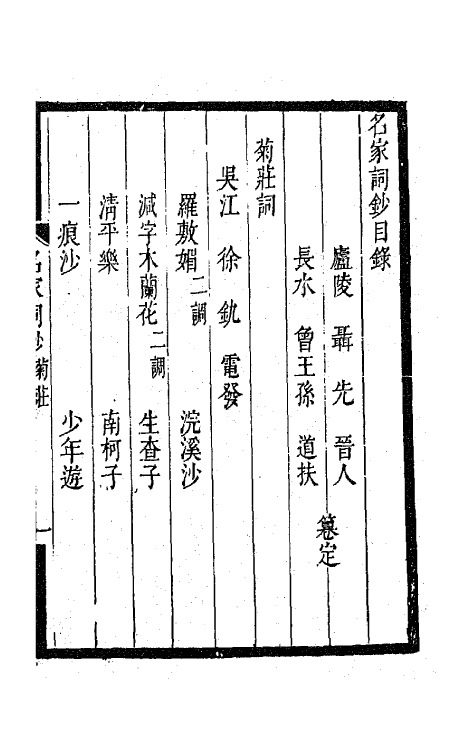 名家詞鈔目錄
廬陵 聶先 晉人
長水 曾王孫 道扶
篹定
菊莊詞
吳江 徐釚 電發
羅敷媚二調 浣溪沙
減字木蘭花二調 生查子
清平樂 南柯子
一痕沙 少年遊
名家詞鈔 菊莊 一